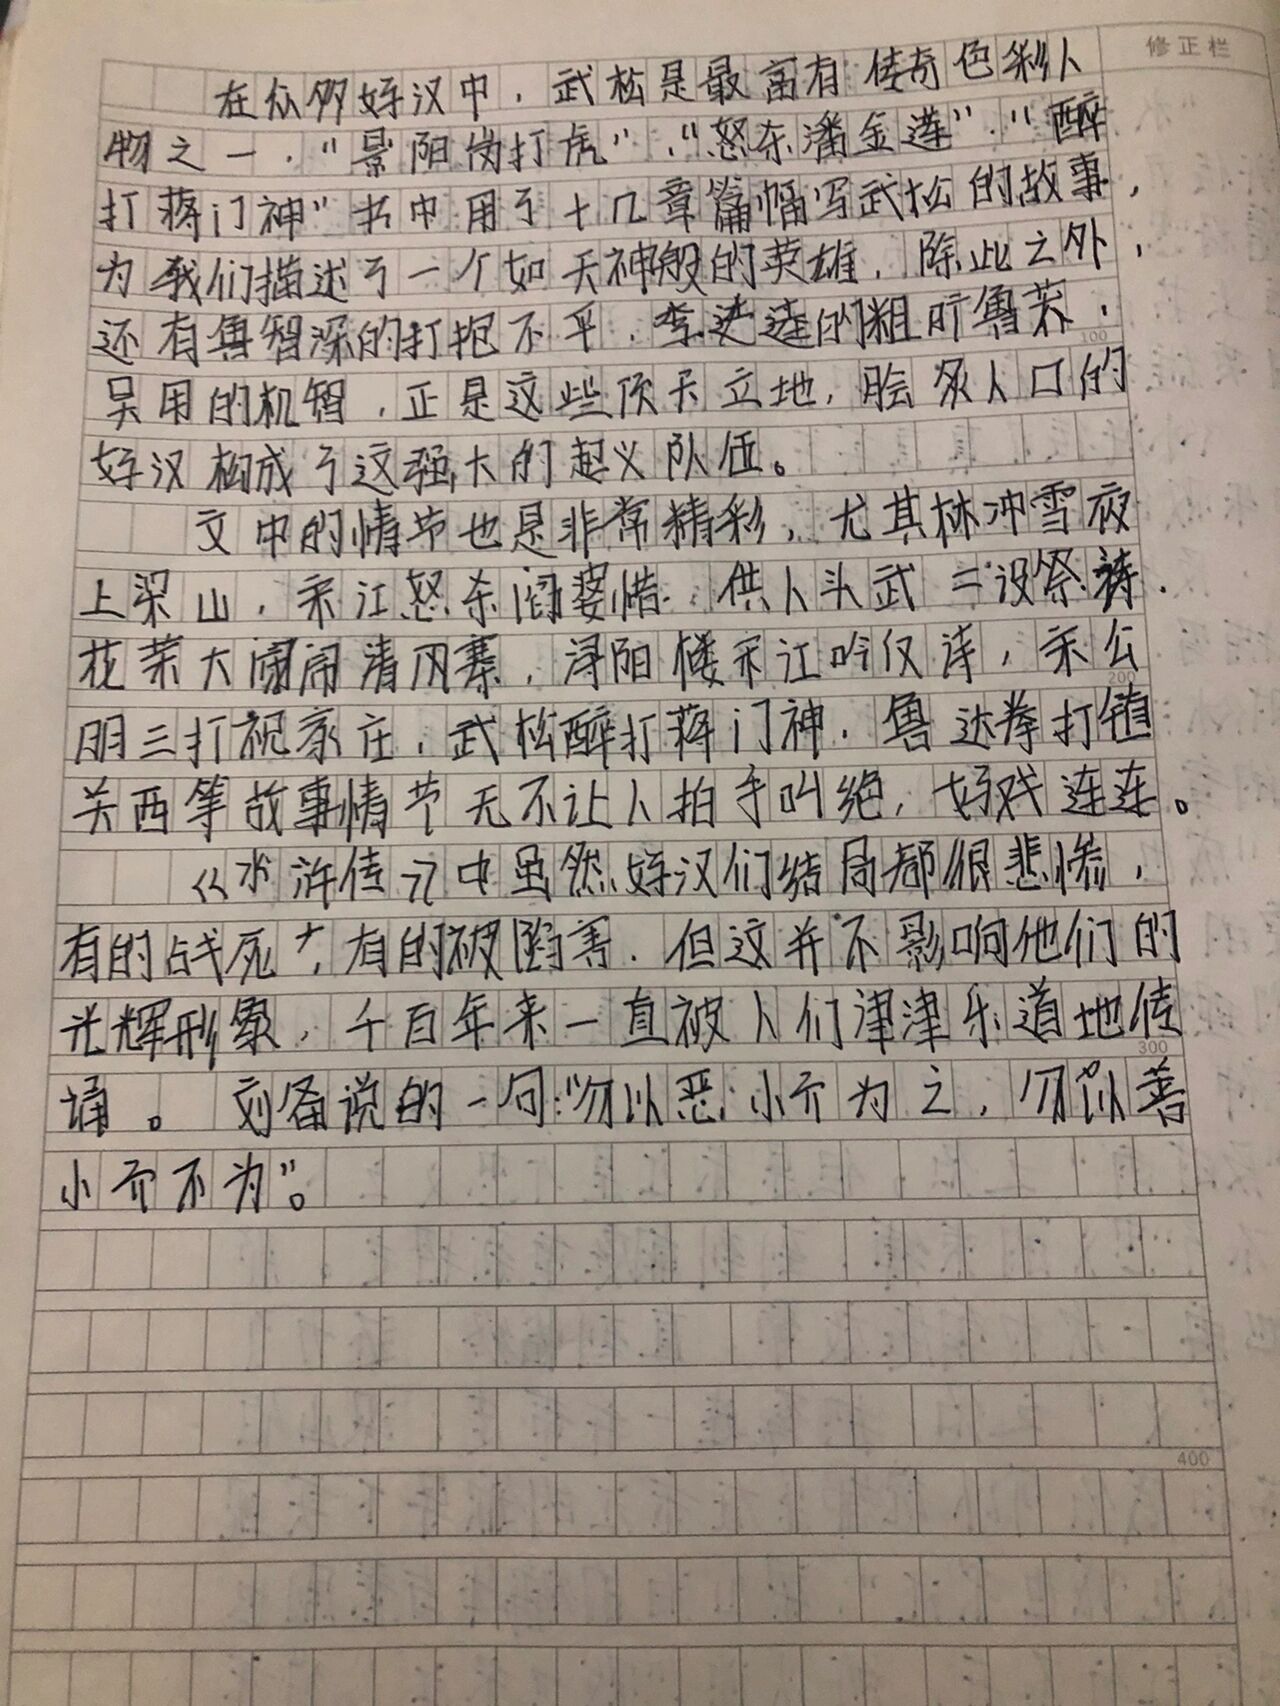 修正栏
在众多好汉中，武松是最富有传奇色彩人
物之一，“景阳岗打虎”、“怒杀潘金莲”、“醉
打蒋门神”书中用了十几章篇幅写武松的故事，
为我们描述了一个如天神般的英雄，除此之外，
还有鲁智深的打抱不平，李逵的粗旷鲁莽，
100
吴用的机智，正是这些顶天立地，脍炙人口的
好汉构成了这强大的起义队伍。
文中的情节也是非常精彩，尤其林冲雪夜
上梁山，宋江怒杀阎婆惜，供人头武二设祭，
花荣大闹清风寨，浔阳楼宋江吟反诗，宋公
200
明三打祝家庄，武松醉打蒋门神，鲁达拳打镇
关西等故事情节无不让人拍手叫绝，好戏连连。
《水浒传》中虽然好汉们结局都很悲惨，
有的战死，有的被陷害，但这并不影响他们的
光辉形象，千百年来一直被人们津津乐道地传
300
诵。刘备说的一句：“勿以恶小而为之，勿以善
小而不为”。
400